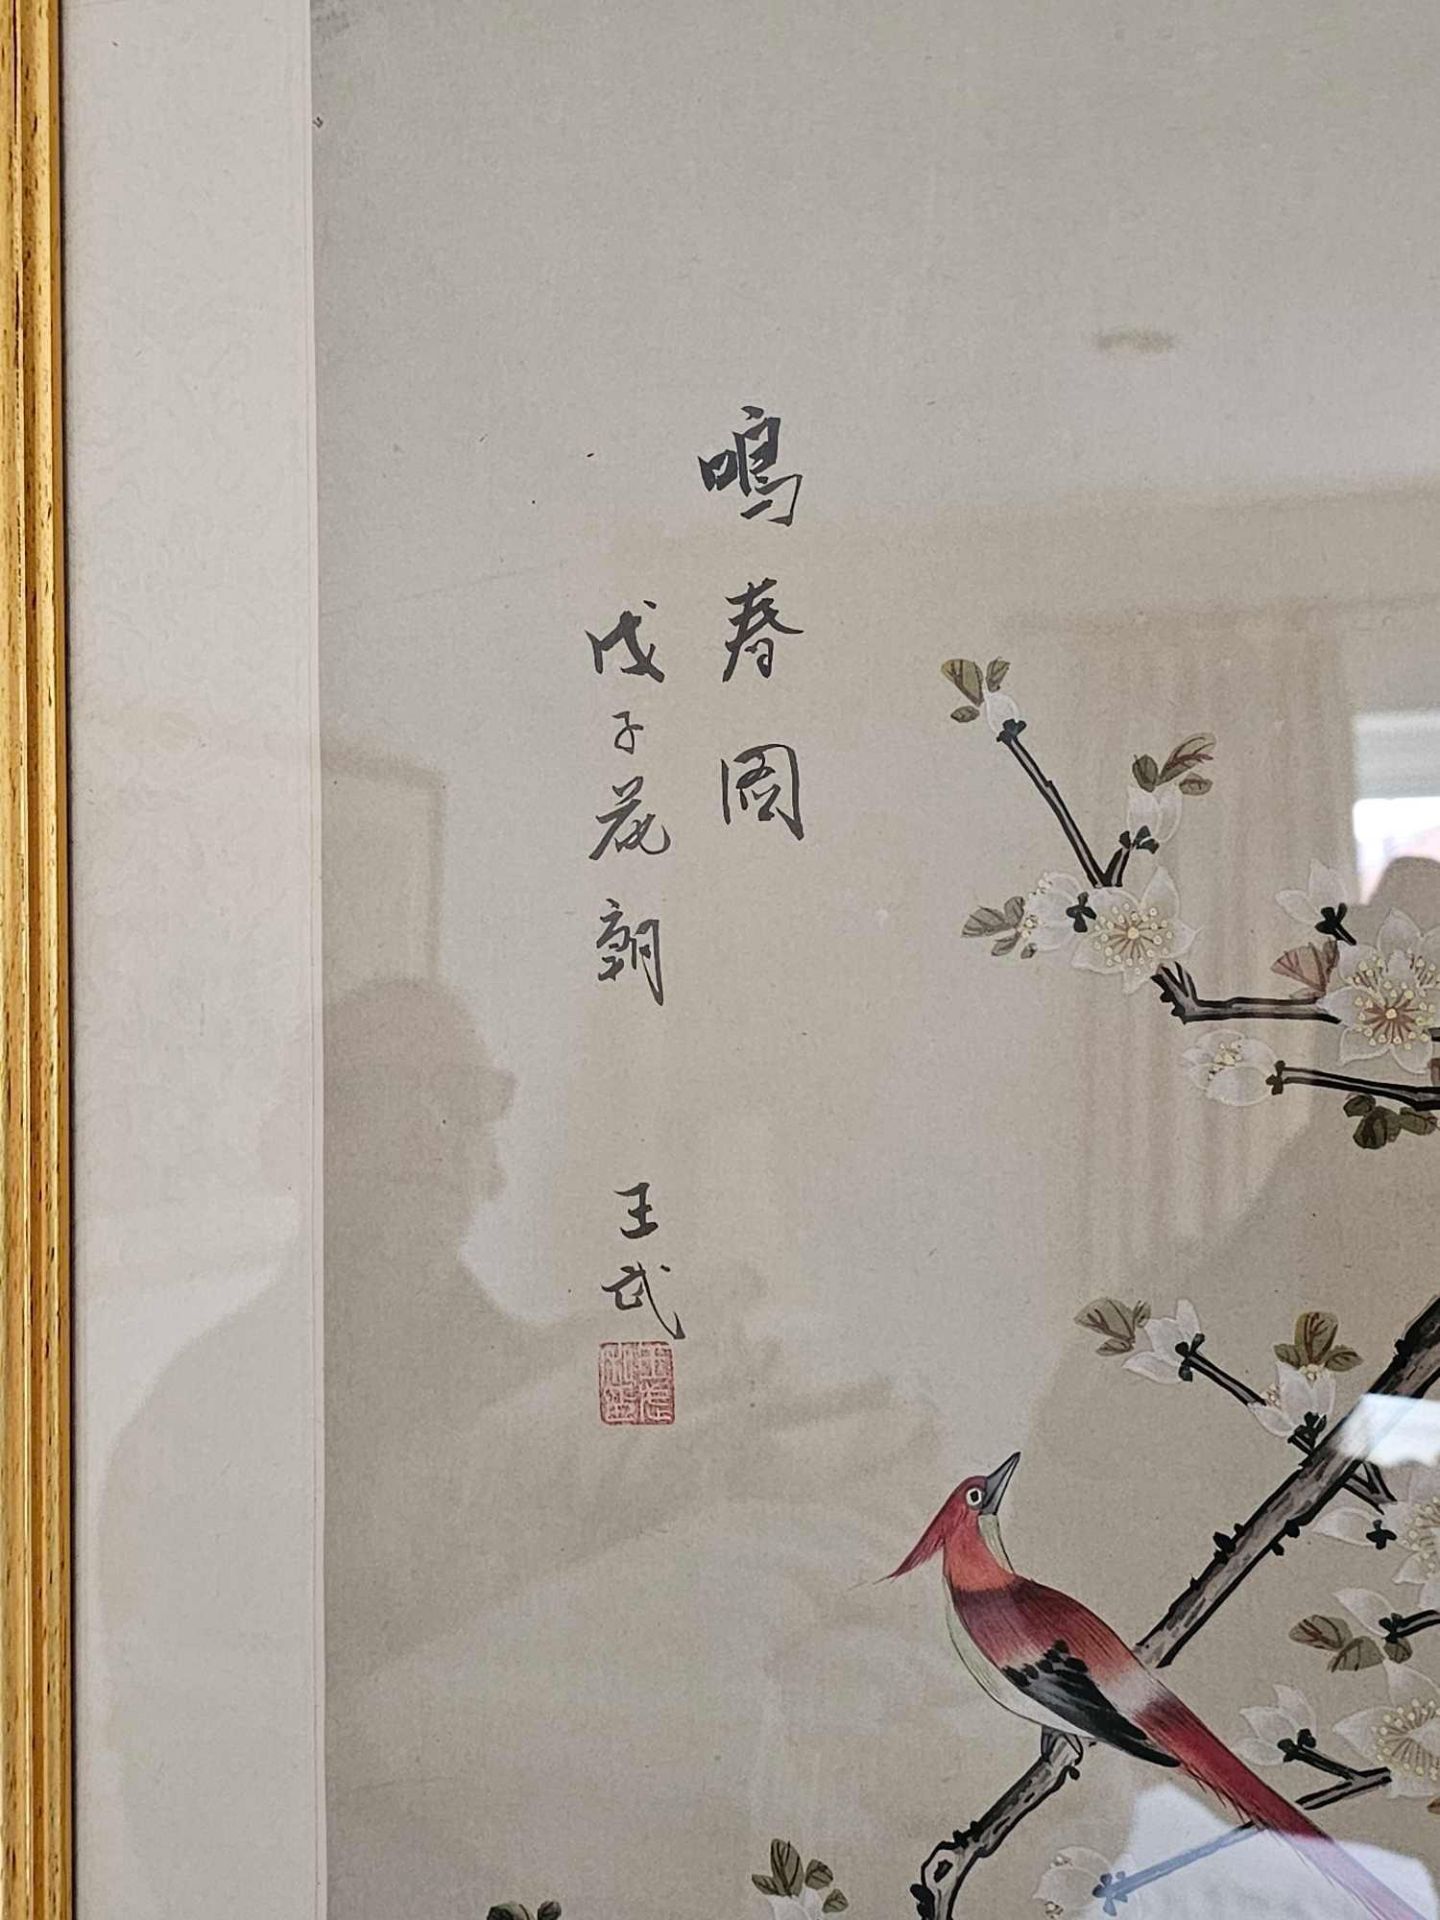 鳴春圖
戊子花朝 王武